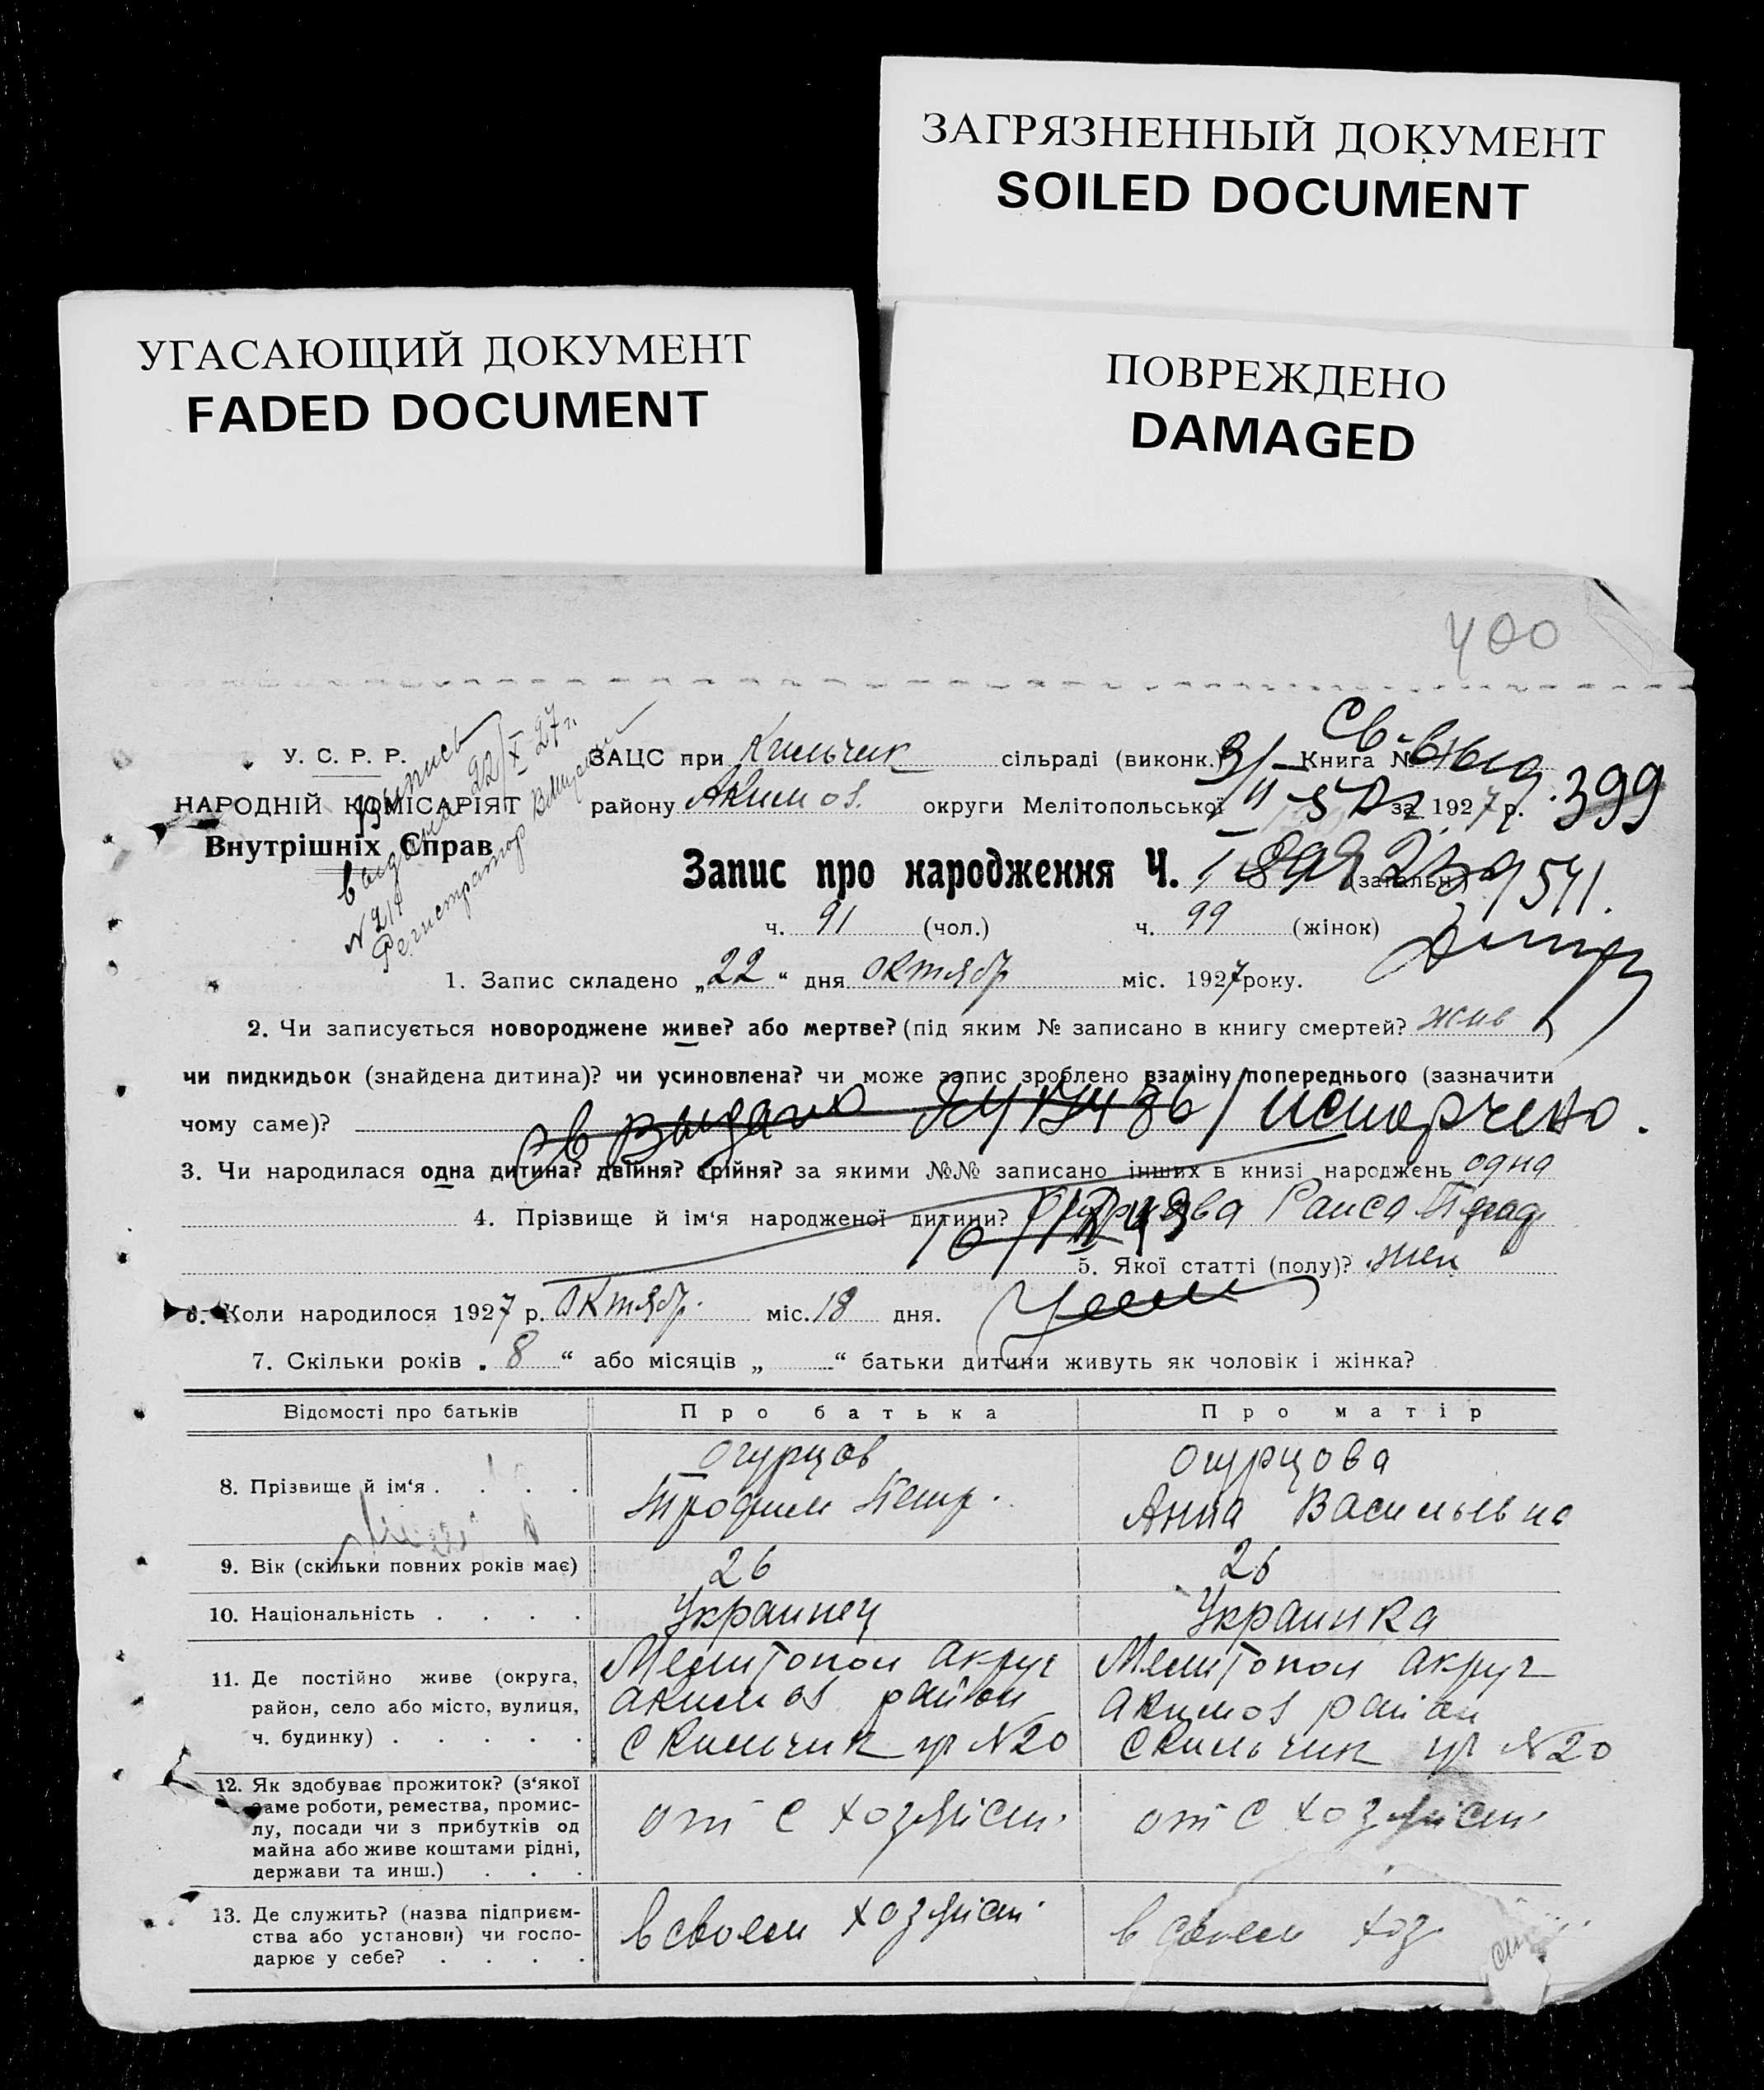 ЗАГРЯЗНЕННЫЙ ДОКУМЕНТ
SOILED DOCUMENT
УГАСАЮЩИЙ ДОКУМЕНТ
FADED DOCUMENT
ПОВРЕЖДЕНО
DAMAGED
400
У. С. Р. Р.
НАРОДНІЙ КОМІСАРІЯТ
Внутрішніх Справ
Выпись
выдана 22/X-27 г.
N 214
Регистратор
ЗАЦС при Кильчик сільраді (виконк.) Книга №
району Акимов. округи Мелітопольської за 1927 р.
Св-во выд.
399
Запис про народження Ч. (загальн.)
541.
ч. 91 (чол.) ч. 99 (жінок)
1. Запис складено „22“ дня октябр міс. 1927 року.
2. Чи записується новороджене живе? або мертве? (під яким № записано в книгу смертей? жив )
чи пидкидьок (знайдена дитина)? чи усиновлена? чи може запис зроблено взаміну попереднього (зазначити
чому саме)?
св выдано испорчено.
3. Чи народилася одна дитина? двійня? трійня? за якими №№ записано інших в книзі народжень одна
4. Прізвище й ім'я народженої дитини? Раиса
5. Якої статті (полу)? жен
6. Коли народилося 1927 р. Октябр. міс. 18 дня.
7. Скільки років „ 8 “ або місяців „ “ батьки дитини живуть як чоловік і жінка?
Відомості про батьків Про батька Про матір
8. Прізвище й ім'я . . . . Огурцов Трофим Петр. Огурцова Анна Васильевна
9. Вік (скільки повних років має) 26 26
10. Національність . . . . Украинец Украинка
11. Де постійно живе (округа,
район, село або місто, вулиця,
ч. будинку) . . . . .
Мелитопол акруг
акимов район
с Кильчик ул N20
Мелитопол акруг
акимов район
с Кильчик ул N20
12. Як здобуває прожиток? (з'якої
саме роботи, ремества, промис-
лу, посади чи з прибутків од
майна або живе коштами рідні,
держави та инш.) . . .
от с хозяйст.
от с хозяйст.
13. Де служить? (назва підприєм-
ства або установи) чи госпо-
дарює у себе? . . . .
в своем хозяйст.
в своем хоз